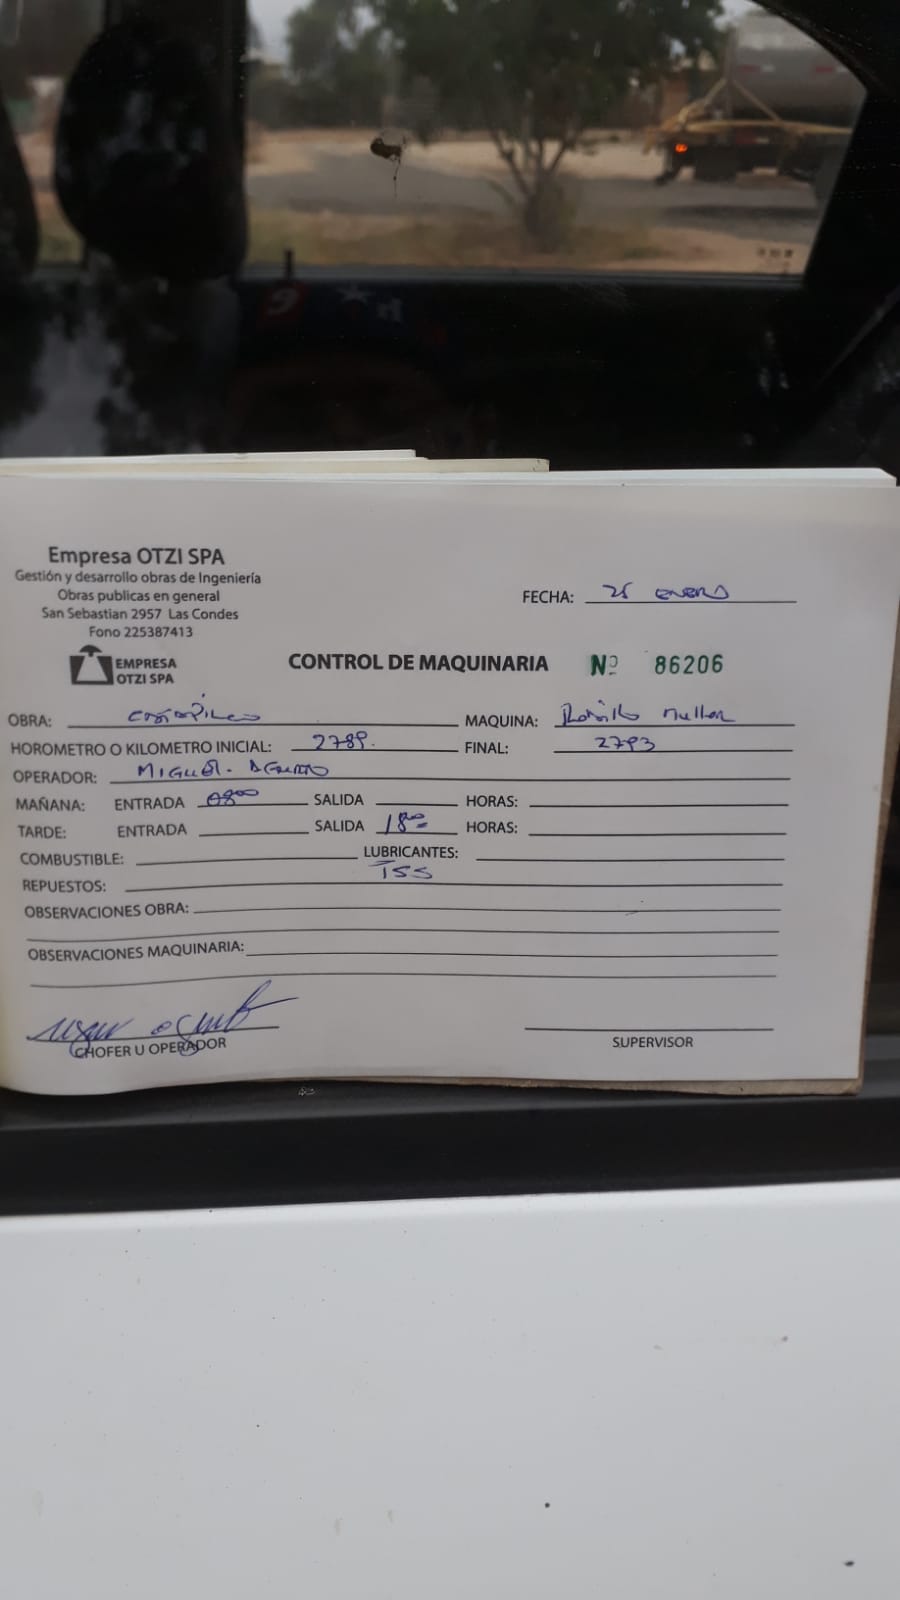 Empresa OTZI SPA
Gestión y desarrollo obras de Ingeniería
Obras publicas en general
San Sebastian 2957 Las Condes
Fono 225387413
EMPRESA
OTZI SPA
FECHA: 25 ENERO
CONTROL DE MAQUINARIA Nº 86206
OBRA: MAQUINA: Rodillo Muller
HOROMETRO O KILOMETRO INICIAL: 2789. FINAL: 2793
OPERADOR: MIGUEL.
MAÑANA: ENTRADA 0800 SALIDA HORAS:
TARDE: ENTRADA SALIDA 1800 HORAS:
COMBUSTIBLE: LUBRICANTES:
REPUESTOS:
OBSERVACIONES OBRA:
OBSERVACIONES MAQUINARIA:
CHOFER U OPERADOR SUPERVISOR